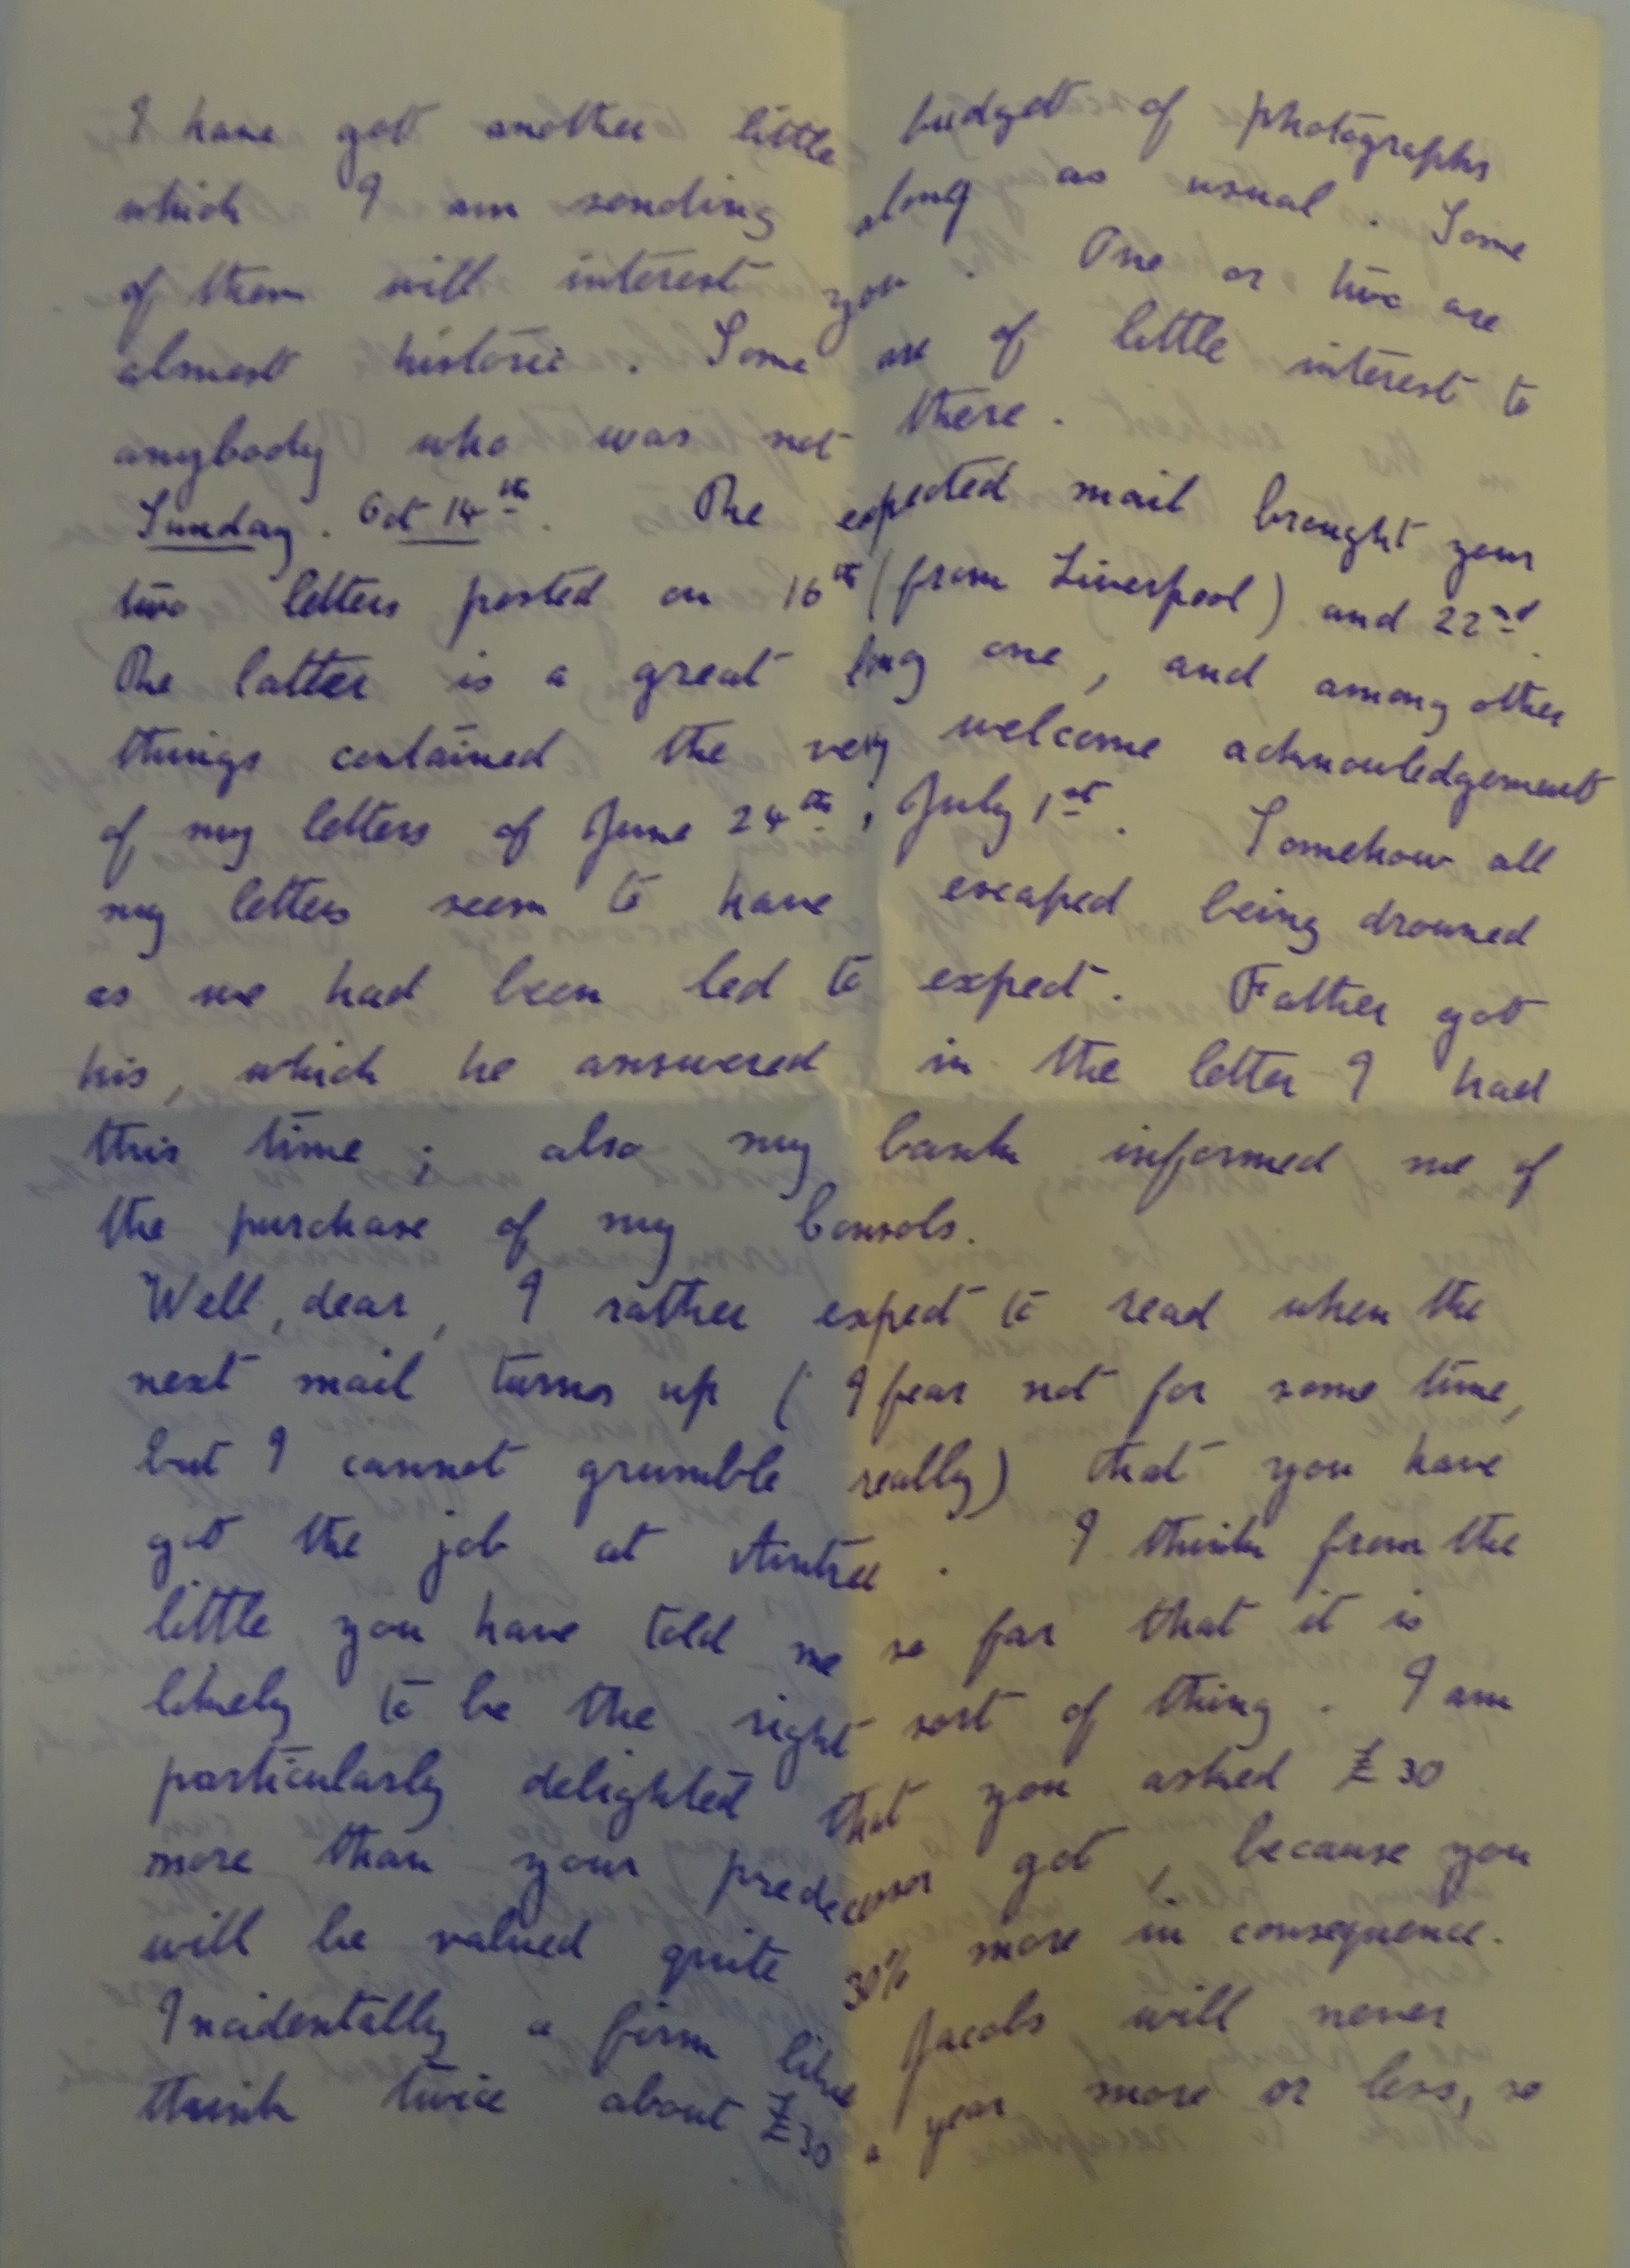 I have got another little budgett of photographs
which I am sending along as usual. Some
of them will interest you. One or two are
almost historic. Some are of little interest to
anybody who was not there.
Sunday. Oct 14th. The expected mail brought your
two letters posted on 16th (from Liverpool) and 22nd.
The latter is a great long one, and among other
things contained the very welcome acknowledgement
of my letters of June 24th; July 1st. Somehow all
my letters seem to have escaped being drowned
as we had been led to expect. Father got
his, which he answered in the letter I had
this time; also my bank informed me of
the purchase of my Consols.
Well, dear, I rather expect to read when the
next mail turns up (I fear not for some time,
but I cannot grumble really) that you have
got the job at Aintree. I think from the
little you have told me so far that it is
likely to be the right sort of thing. I am
particularly delighted that you asked £30
more than your predecessor got, because you
will be valued quite 30% more in consequence.
Incidentally a firm like Jacobs will never
think twice about £30 a year more or less, so